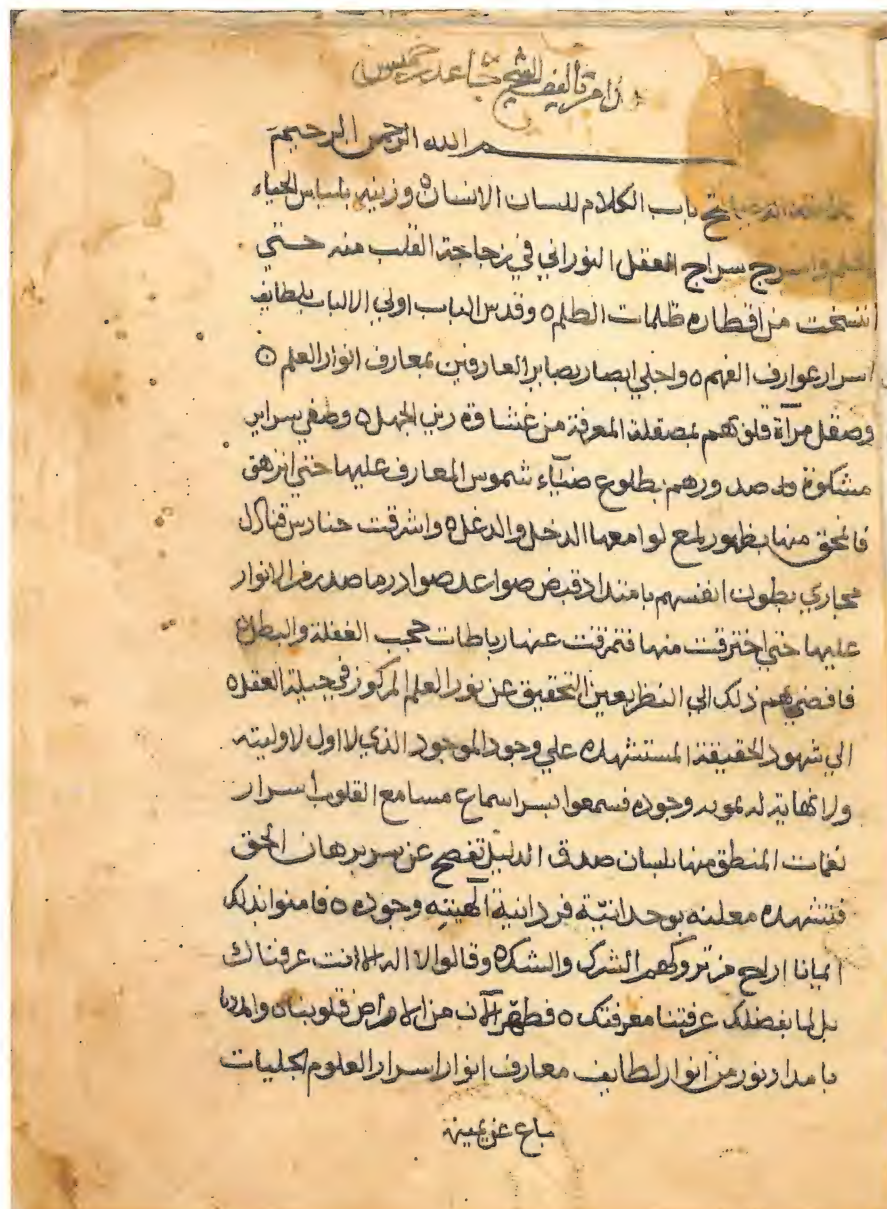 تاليف الشيخ جاعد بن خميس
بسم الله الرحمن الرحيم
باب الكلام للسان الانسان ٥ وزينه بلباس الحياء
واسرج سراج العقل النوراني في زجاجة القلب منه حتي
انتسخت من اقطاره ظلمات الظلم ٥ وقدس الباب اولي الالباب بلطايف
اسرار عوارف الفهم ٥ واجلي ابصار بصاير العارفين بمعارف انوار العلم ٥
وصقل مرآة قلوبهم بمصقلة المعرفة من غشاوة رين الجهل ٥ وصفي سراير
مشكوة صدورهم بطلوع ضيآء شموس المعارف عليها حتي انزهق
فانمحق منها بظهور لمع لوامعها الدخل والدغل ٥ واشرقت حنادس قنادل
مجاري بطون انفسهم بامتداد قبض صواعد صوادر ما صدر من الانوار
عليها حتي اخترقت منها فتمزقت عنها رباطات حجب الغفلة والبطل ٥
فافضي بهم ذلك الي النظر بعين التحقيق عن نور العلم المركوز في جبلة العقل ٥
الي شهود الحقيقة المستشهده علي وجود الموجود الذي لا اول لاوليته
ولا نهاية له وجوده فسمعوا بسر اسماع مسامع القلوب اسرار
نغمات المنطق منها بلسان صدق الدليل تفصح عن سر برهان الحق
فتشهده معلنه بوحدانيّة فردانية آلهيته وجوده ٥ فامنوا بذلك
ايمانا اراح من تروكهم الشرك والشكه وقالوا لا اله الا انت عرفناك
بل انا بفضلك عرفتنا معرفتك ٥ فطهّر الآن من الامراض قلوبنا ٥ وامددنا
بامداد نور من انوار لطايف معارف انوار اسرار العلوم الجليات
باع عن يمينه